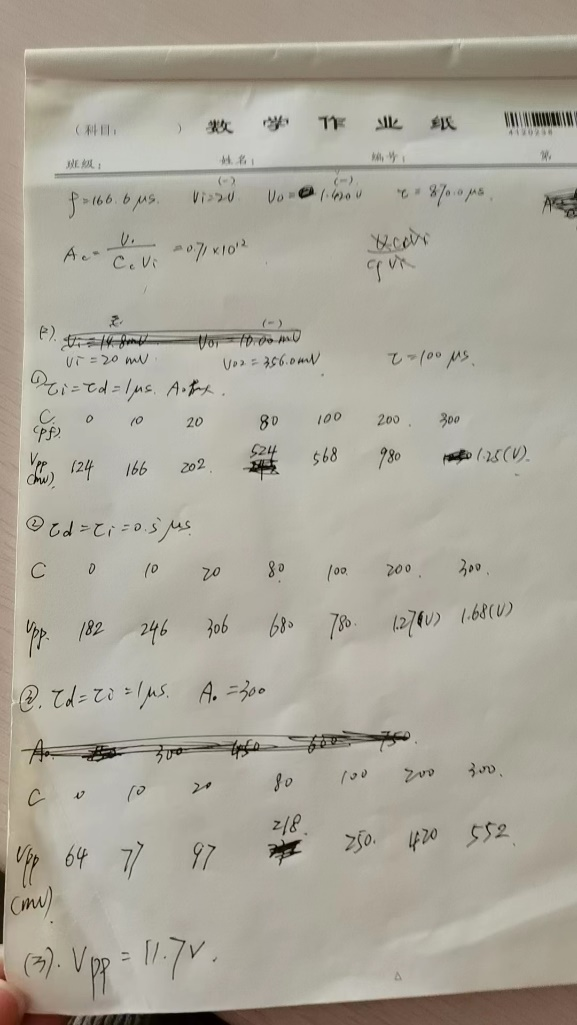 (科目: ) 数 学 作 业 纸
班级: 姓名: 编号: 第
(-) (-)
f=166.6 μs. Vi=2V Vo= 1.420V τ=870.0μs.
Ac= Vo / Cc Vi =0.71×10¹²
(-)
Vi=14.8mV Vo1=10.00mV
Vi=20 mV Vo2=356.0mV τ=100 μs.
① τi=τd=1μs. A₀最大.
C (pf). 0 10 20 80 100 200. 300
Vpp (mv) 124 166 202. 524 568 980 1.25(V).
② τd=τi=0.5μs.
C 0 10 20 80 100. 200. 300.
Vpp. 182 246 306 680 780. 1.27(V) 1.68(V)
③. τd=τi=1μs. A₀=300
A₀ 300 450 600 750.
C 0 10 20 80 100 200 300.
Vpp (mv) 64 77 97 218. 250. 420 552.
(3). Vpp=11.7V.